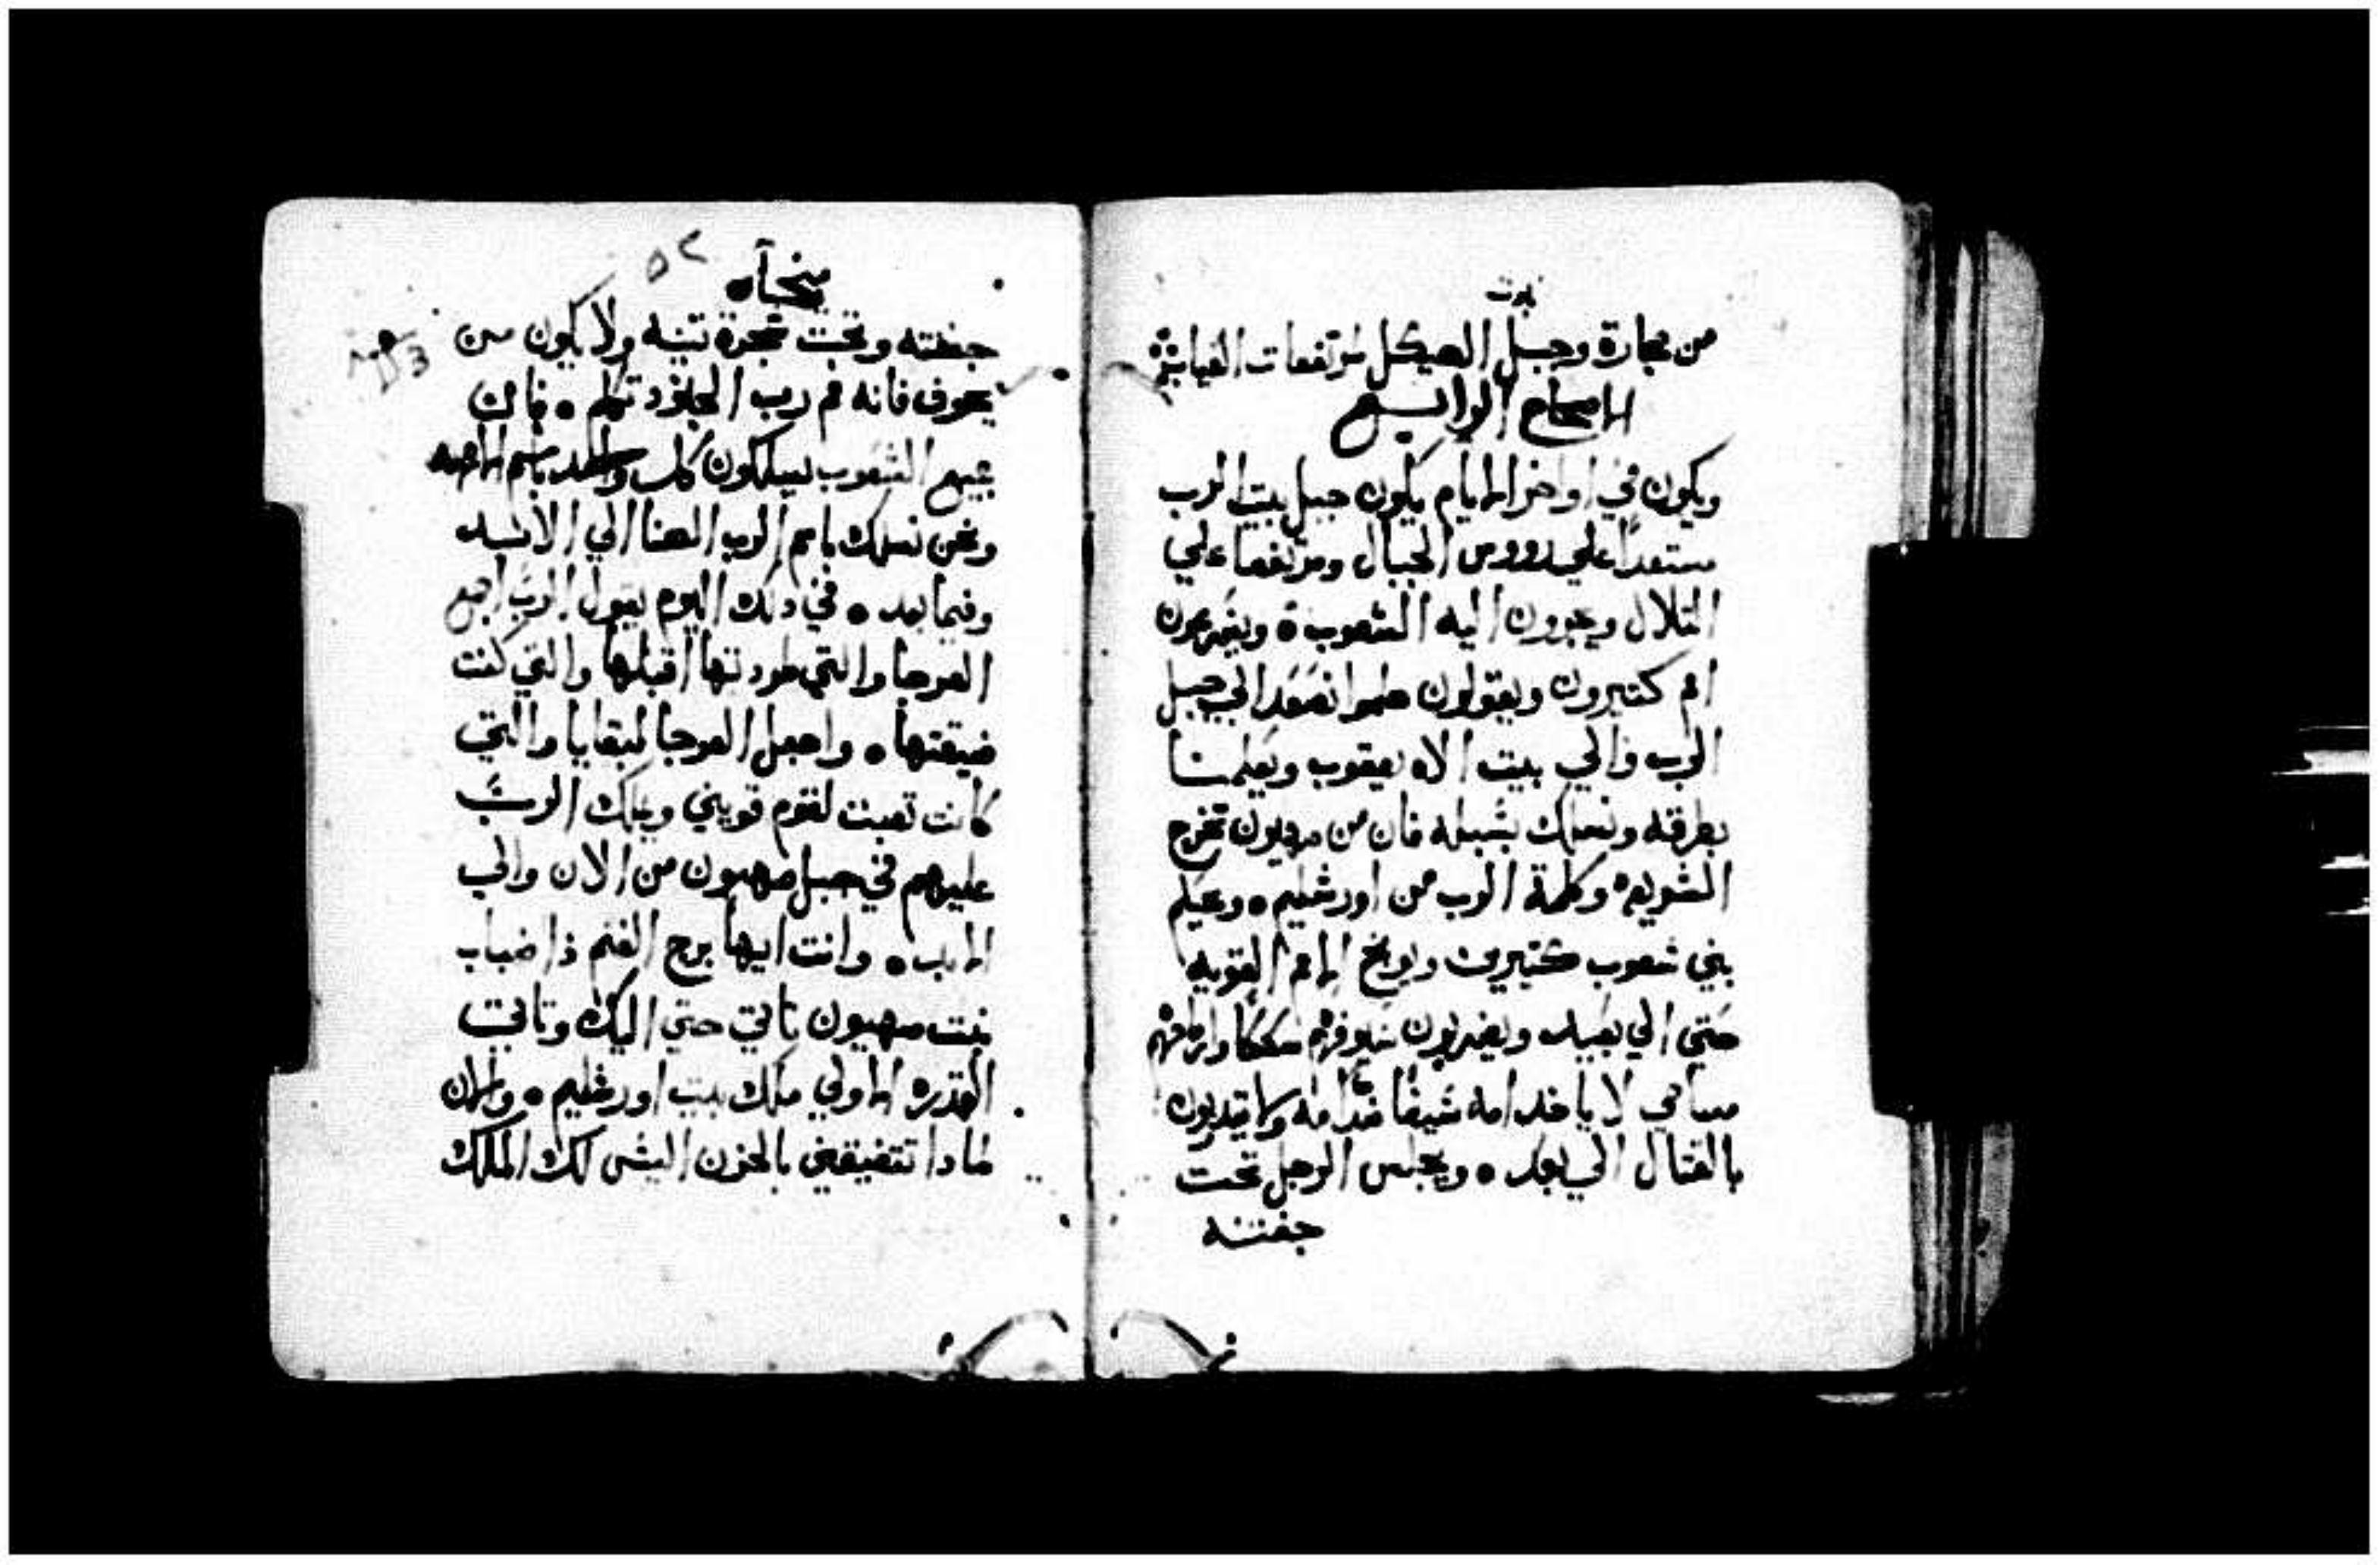 نبوت
من حجارة وجبل الهيكل مرتفعات الغياض
الاصحاح الرابع
ويكون في اواخر الايام يكون جبل بيت الرب
مستعدًا علي رووس الجبال ومرتفعا علي
التلال ويجرون اليه الشعوب ويتسرعون
امم كتيرون ويقولون هلموا نصعد الي جبل
الرب والي بيت الاه يعقوب ويعلمنا
بطرقه ونسلك بسبله فان من صهيون تخرج
الشريعه وكلمة الرب من اورشليم ٥ ويحكم
بني شعوب كتيرين ويوبخ الامم القويه
حتي الي بعيد ويضربون سيوفهم سككا وارماحهم
مساحي لا ياخد امه سيفًا قدامه ولا يتدربون
بالقتال الي بعد ٥ ويجلس الرجل تحت
جفنته
ميخآه
٥٢
جفنته وتحت شجرة تينه ولا يكون من
يخوف فانه فم رب الجنود تكلم ٥ فان
جميع الشعوب يسلكون كل واحد باسم الاهه
ونحن نسلك باسم الرب الهنا الي الابد
وفيما بعد ٥ في ذلك اليوم يقول الرب اجمع
العرجا والتي طردتها اقبلها والتي كنت
ضيقتها ٥ واجعل العرجا لبقايا والتي
كانت تعبت لقوم قويين ويملك الرب
عليهم في جبل صهيون من الان والي
الابد ٥ وانت ايها برج الغنم ذا ضباب
بنت صهيون تاتي حتي اليك وتاتي
القدره الاولي ملك بنت اورشليم ٥ والان
لمادا تتضيقين بالحزن اليس لك الملك